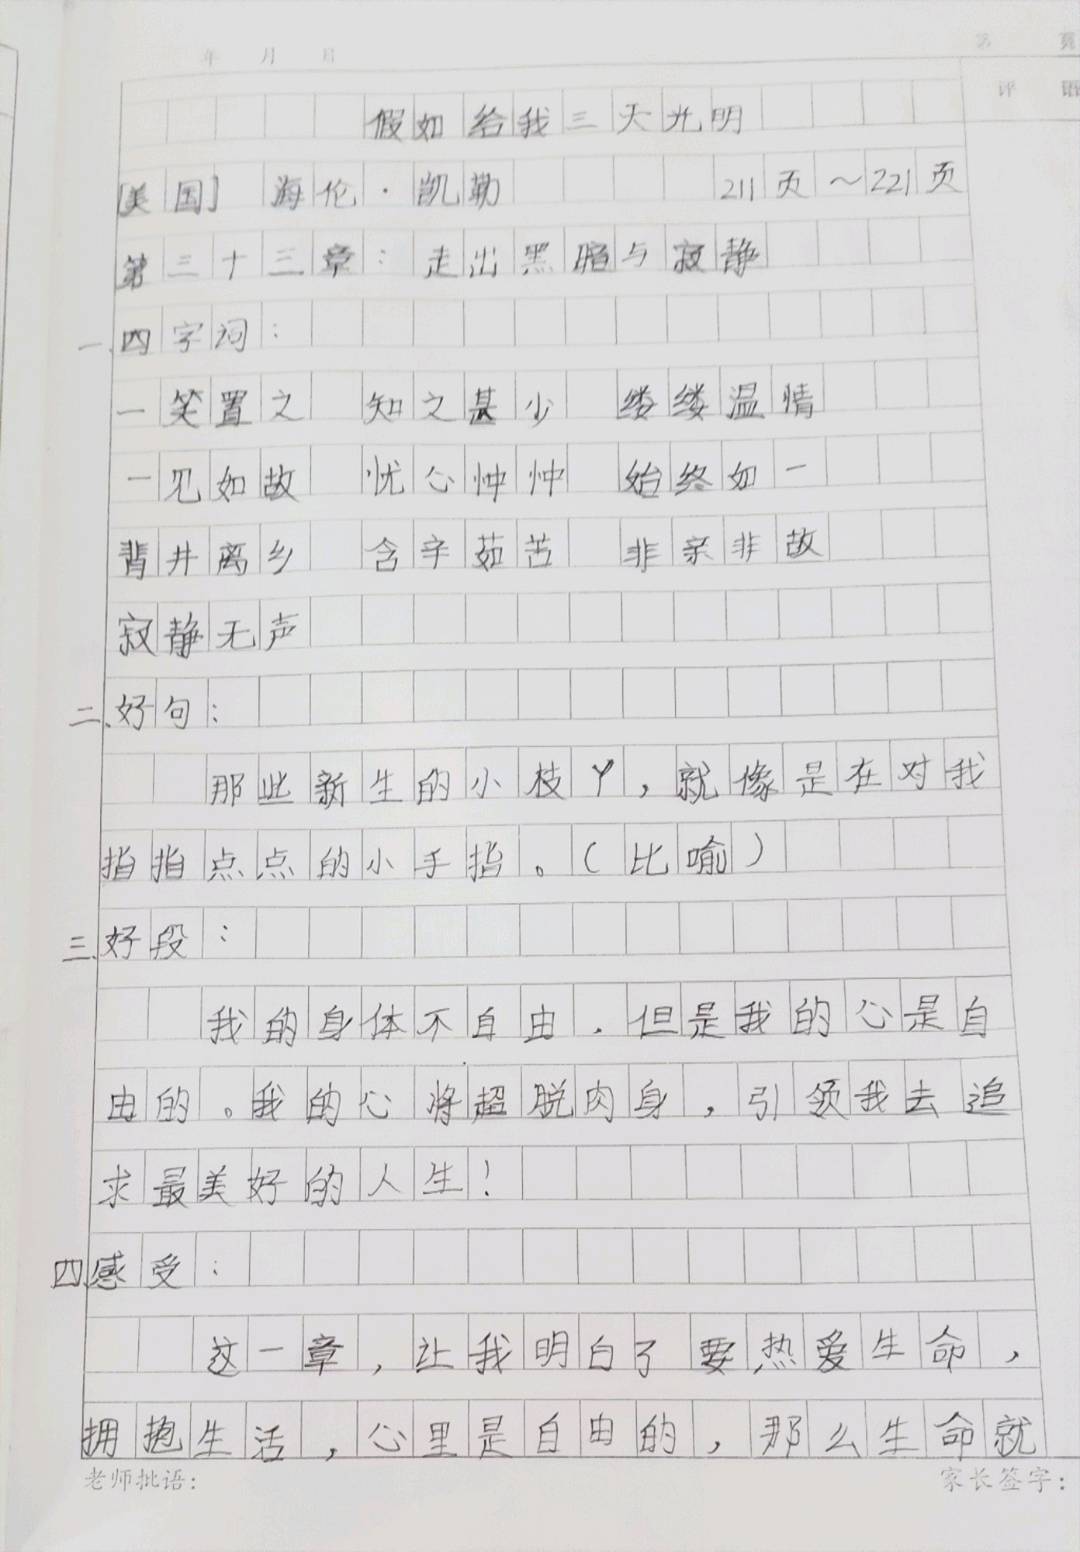 年 月 日
第 页
评 语
假如给我三天光明
[美国] 海伦·凯勒 211页～221页
第三十三章：走出黑暗与寂静
一、四字词：
一笑置之 知之甚少 缕缕温情
一见如故 忧心忡忡 始终如一
背井离乡 含辛茹苦 非亲非故
寂静无声
二、好句：
那些新生的小枝丫，就像是在对我
指指点点的小手指。（比喻）
三、好段：
我的身体不自由．但是我的心是自
由的。我的心将超脱肉身，引领我去追
求最美好的人生！
四、感受：
这一章，让我明白了要热爱生命，
拥抱生活，心里是自由的，那么生命就
老师批语： 家长签字：